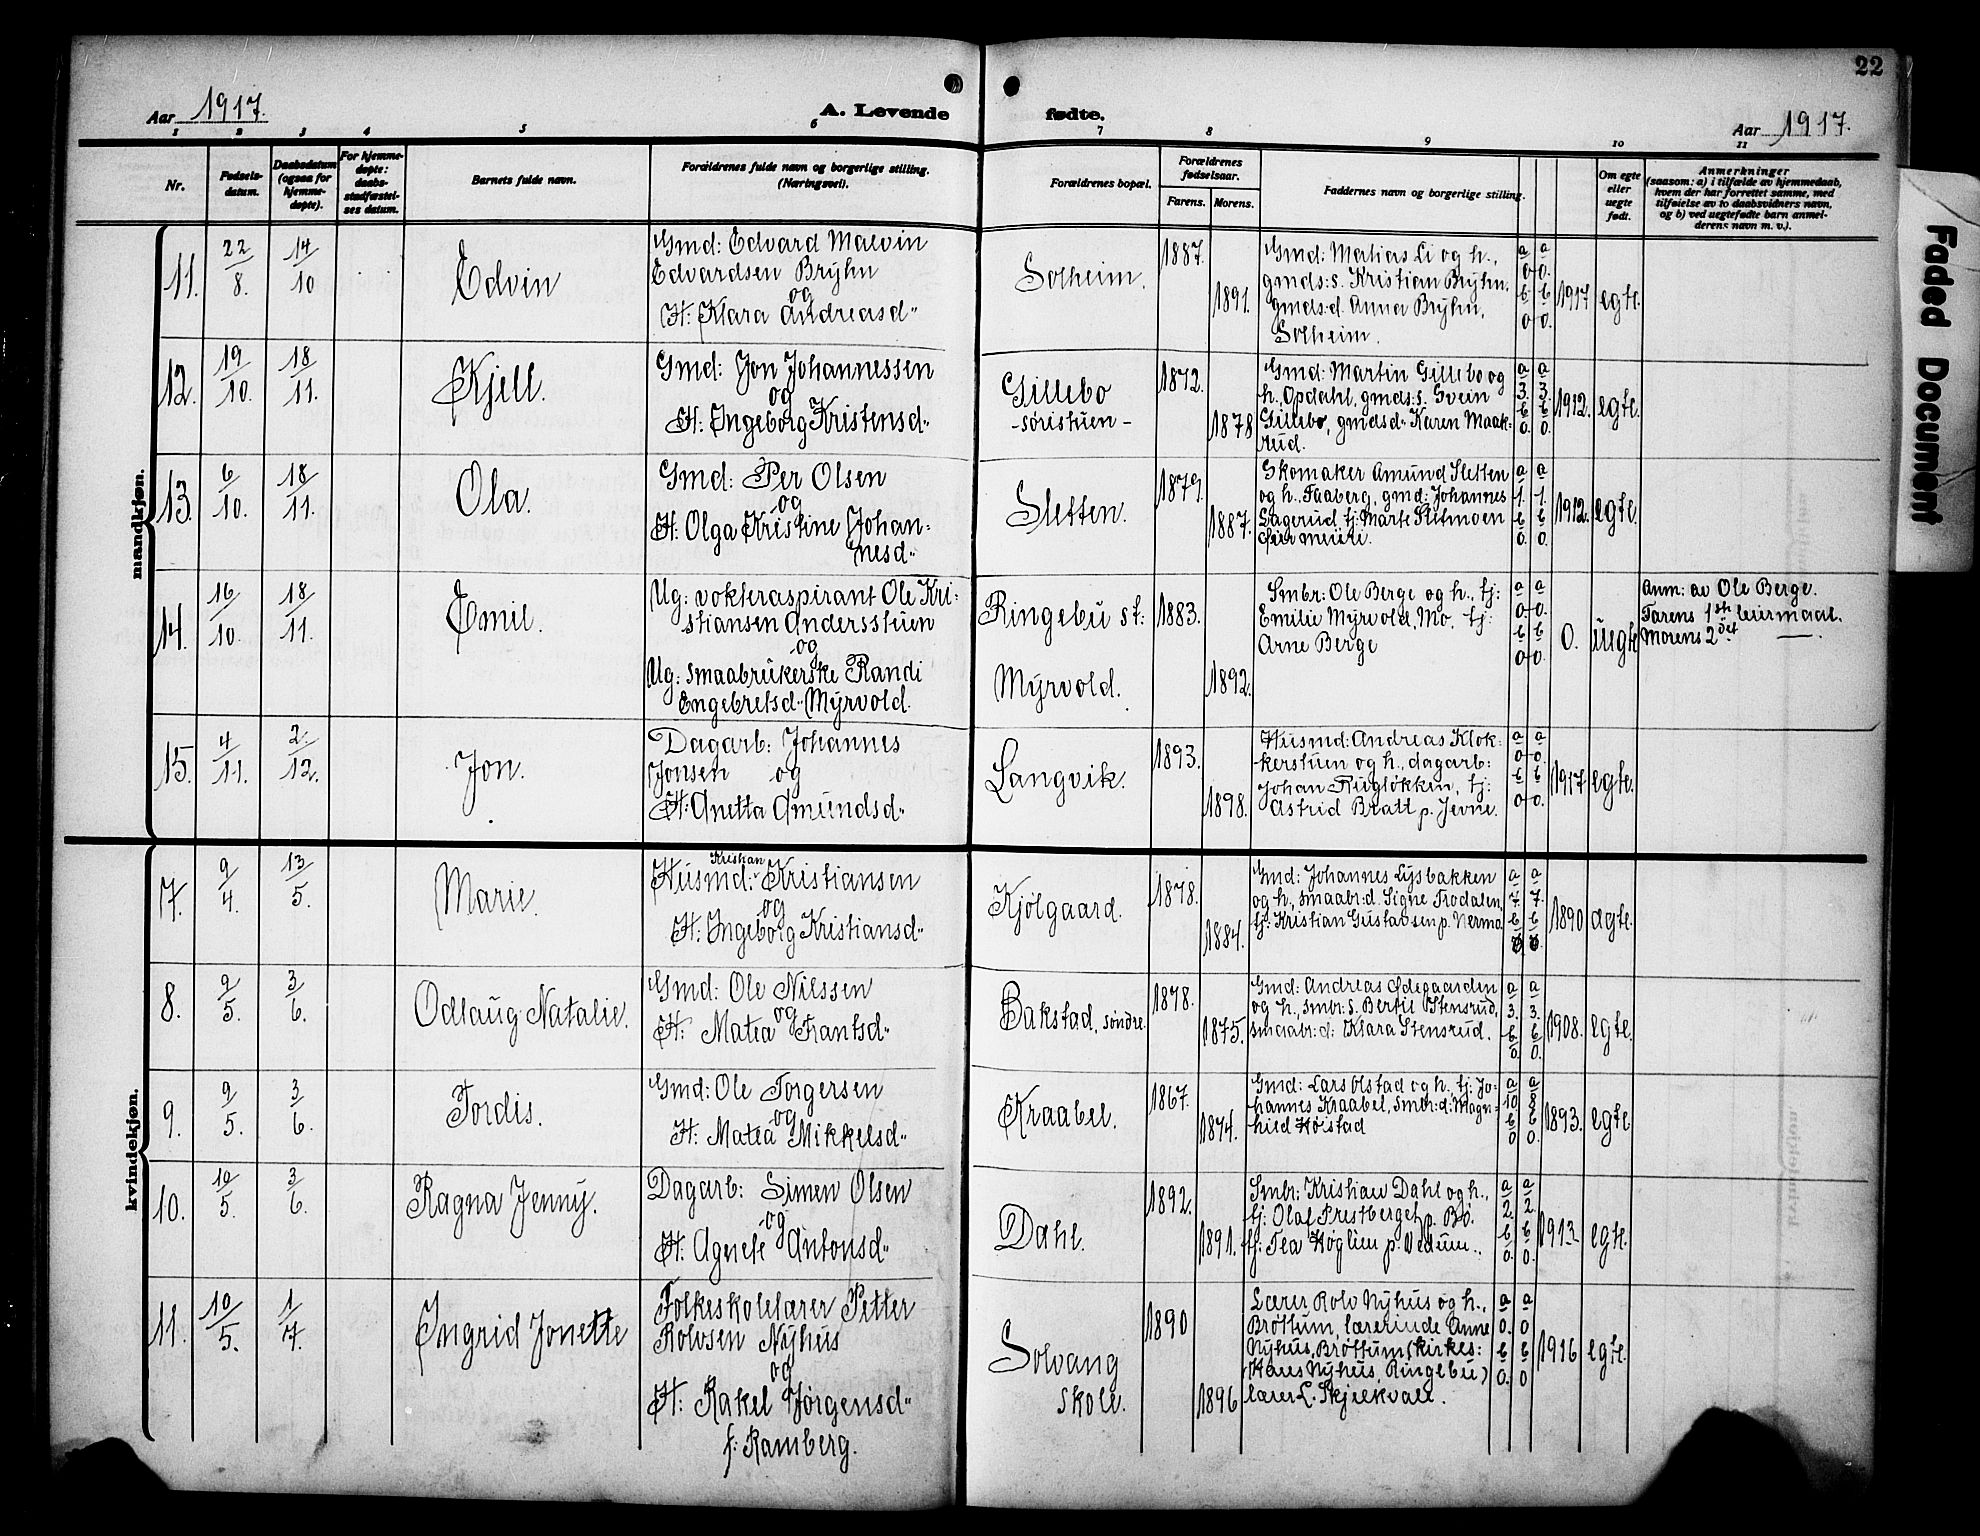 22
Aar 1917.
A. Levende fødte.
Aar 1917.
1 2 3 4 5 6 7 8 9 10 11
Nr.
Fødsels-
datum.
Daabsdatum
(ogsaa for
hjemme-
døpte).
For hjemme-
døpte:
daabs-
stadfæstel-
ses datum.
Barnets fulde navn.
Forældrenes fulde navn og borgerlige stilling.
(Næringsvei).
Forældrenes bopæl.
Forældrenes
fødselsaar.
Farens. Morens.
Faddernes navn og borgerlige stilling.
Om egte
eller
uegte
født.
Anmerkninger
(saasom: a) i tilfælde av hjemmedaab,
hvem der har forrettet samme, med
tilføielse av to daabsvidners navn,
og b) ved uegtefødte barn anmel-
derens navn m. v.).
Faded Document
mandkjøn.
11. 22/8. 14/10 Edvin
Gmd: Edvard Malvin
Edvardsen Bryhn
og
H: Klara Andreasd"
Solheim.
1887.
1891.
Gmd: Matias Li og h.,
gmds:s. Kristian Bryhn.
gmds:d. Anna Bryhn,
Solheim.
a a
0 0.
b b
0 0.
1917 egte.
12. 19/10. 18/11. Kjell.
Gmd: Jon Johannessen
og
H: Ingeborg Kristensd"
Gillebo
-søristuen-
1872.
1878
Gmd: Martin Gillebo og
h., Opdahl, gmds:s. Svein
Gillebo, gmdsd" Karen Maak-
rud.
a a
3. 3.
b b
0. 0.
1912. egte.
13. 6/10. 18/11. Ola.
Gmd: Per Olsen
og
H: Olga Kristine Johan-
nesd"
Sletten.
1879.
1887.
Skomaker Amund Sletten
og h., Faaberg, gmd: Johannes
Sagerud, tj: Marte Sletmoen
a a
1. 1.
b b
0. 0.
1912. egte.
14. 16/10. 18/11. Emil.
Ug: vokteraspirant Ole Kri-
stiansen Andersstuen
og
Ug: smaabrukerske Randi
Engebretsd" Myrvold.
Ringebu st:
Myrvold.
1883.
1892.
Smbr: Ole Berge og h., tj:
Emilie Myrvold, Mo, tj:
Arne Berge
a a
0 0.
b b
0 0.
0. uegte
Anm: av Ole Berge.
Farens 1ste leiermaal.
Morens 2det —
15. 4/11. 2./12. Jon.
Dagarb: Johannes
Jonsen og
H: Anetta Amundsd"
Langvik.
1893.
1898.
Husmd: Andreas Klok-
kerstuen og h., dagarb:
Johan Rugløkken, tj:
Astrid Bratt p. Jevne.
a a
0 0.
b b
0 0.
1917 egte.
kvindekjøn.
7. 9/4. 13/5. Marie.
Kristian
Husmd: Kristiansen
og
H: Ingeborg Kristiansd"
Kjølgaard.
1878.
1884.
Gmd: Johannes Lysbakken
og h., smaabr:d. Signe Trodalen,
tj: Kristian Gustavsen p. Nermo
a a
7. 7.
b b
1890 egte.
8. 9/5. 3/6. Odlaug Natalie.
Gmd: Ole Nilssen
og
H: Matea Frantsd"
Bakstad, søndre
1878.
1875.
Gmd: Andreas Ødegaarden
og h., smbr:s. Bertil Stensrud,
smaabr:d: Klara Stensrud.
a a
3. 3.
b b
0. 0.
1908. egte.
9. 9/5. 3/6. Tordis.
Gmd: Ole Torgersen
og
H: Matea Mikkelsd"
Kraabel.
1867.
1874.
Gmd: Lars Olstad og h. tj: Jo-
hannes Kraabel, smbr:d: Magn-
hild Høistad
a a
10
b b
0 0.
1893. egte.
10. 10/5. 3/6. Ragna Jenny.
Dagarb: Simen Olsen
og
H: Agnete Antonsd"
Dahl.
1892.
1891.
Smbr: Kristian Dahl og h.,
tj: Olaf Prestberget p. Bø.
tj: Tea Høglien p. Vedum.,
a a
2. 2.
b b
0. 0.
1913. egte.
11. 10/5. 1/7. Ingrid Jonette
Folkeskolelærer Petter
Rolvsen Nyhus
og
H: Rakel Jørgensd"
f: Ramberg.
Solvang
skole.
1890
1896
Lærer Rolv Nyhus og h.,
Brøttum, lærerinde Anne
Nyhus, Brøttum, (kirkes:
Hans Nyhus, Ringebu)
lærer L. Skjelkvale.
a a
0. 0
b b
0. 0
1916 egte.